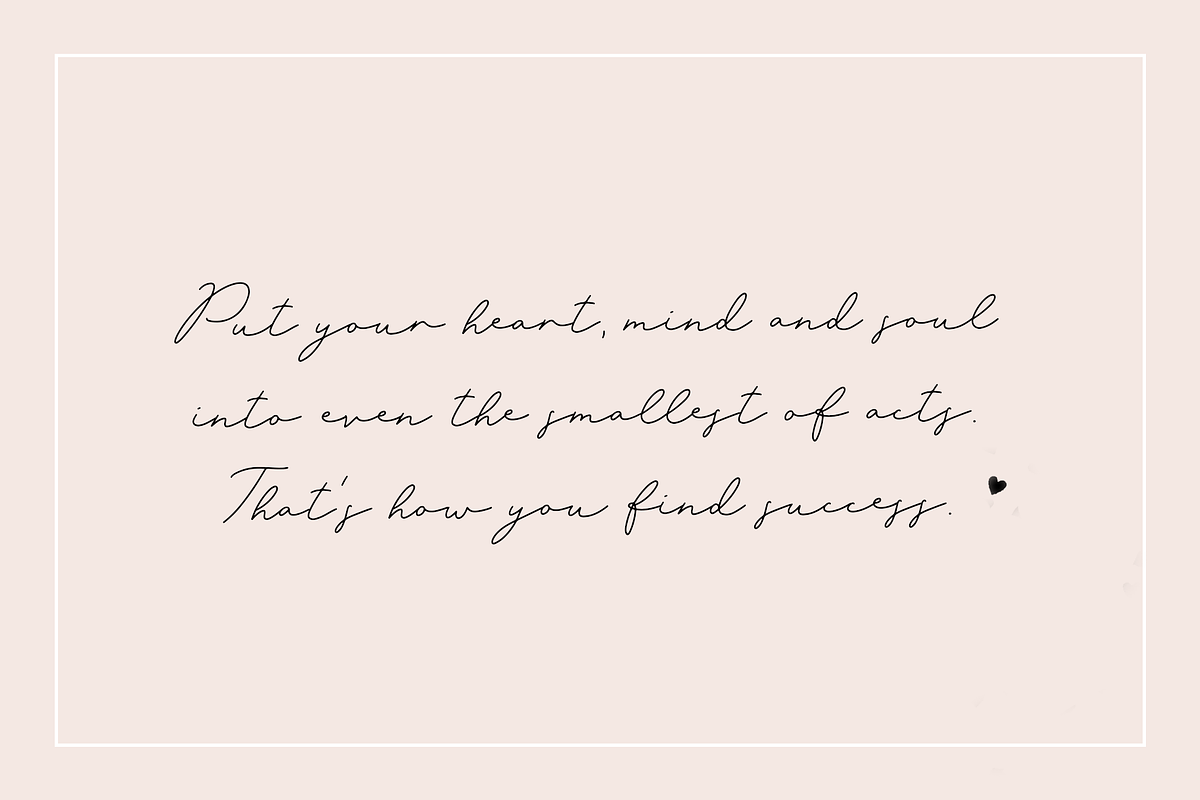 Put your heart, mind and soul
into even the smallest of acts.
That's how you find success.